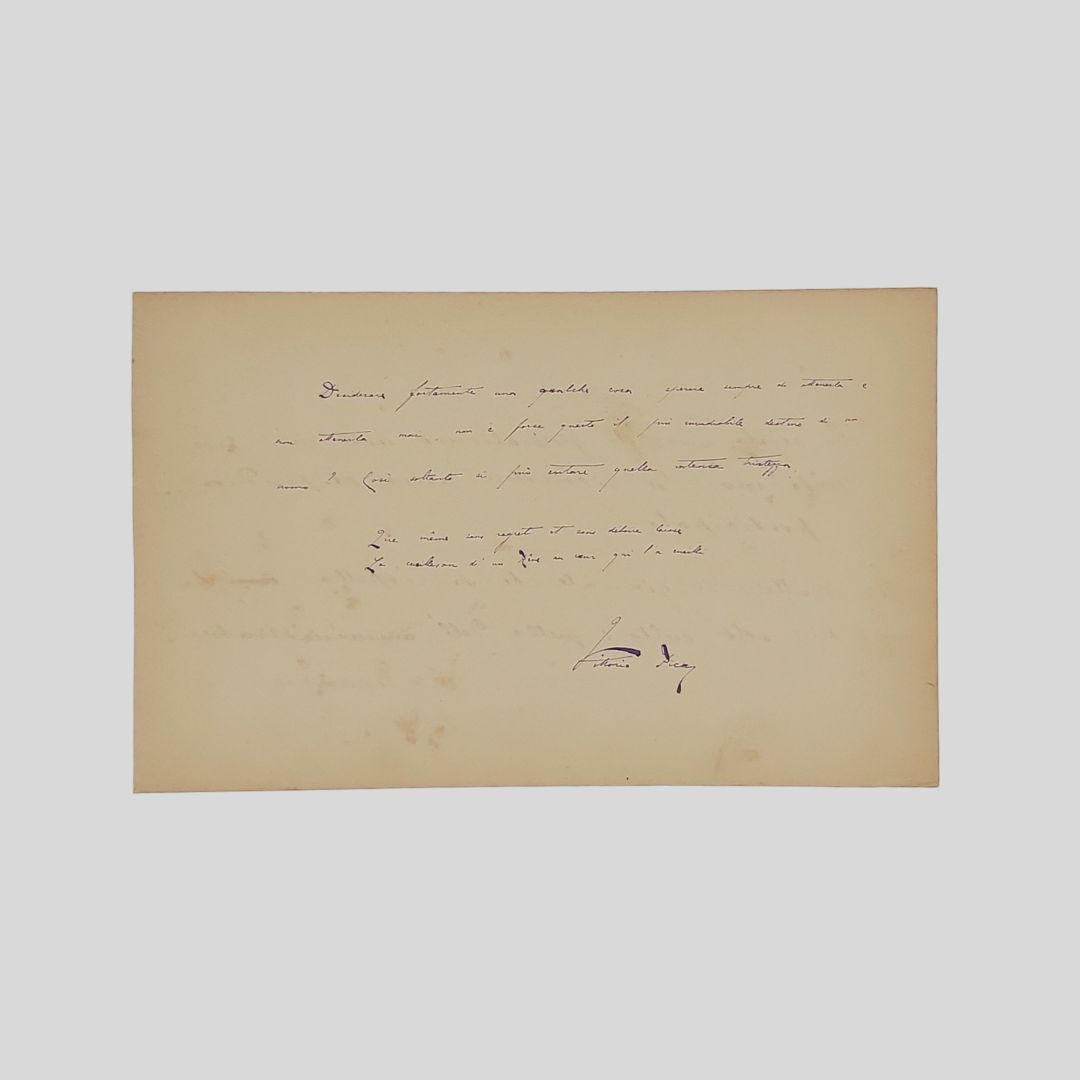 Desiderare fortemente una qualche cosa, sperare sempre di ottenerla e
non ottenerla mai, non è forse questo il più invidiabile destino di un
uomo? Così soltanto si può evitare quella intensa tristezza
Que même sans regret et sans déboire laisse
La cueillaison d'un Rêve au cœur qui l'a cueilli
Vittorio Pica